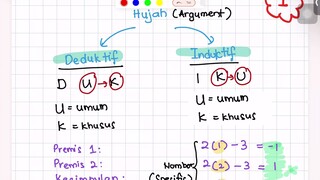 Hujah (Argument)
1
Deduktif
Induktif
D U → K
I K → U
U = umum
K = khusus
U = umum
K = khusus
Premis 1:
Premis 2:
Kesimpulan:
Nombor
(Specific)
2(1) - 3 = -1
2(2) - 3 = 1